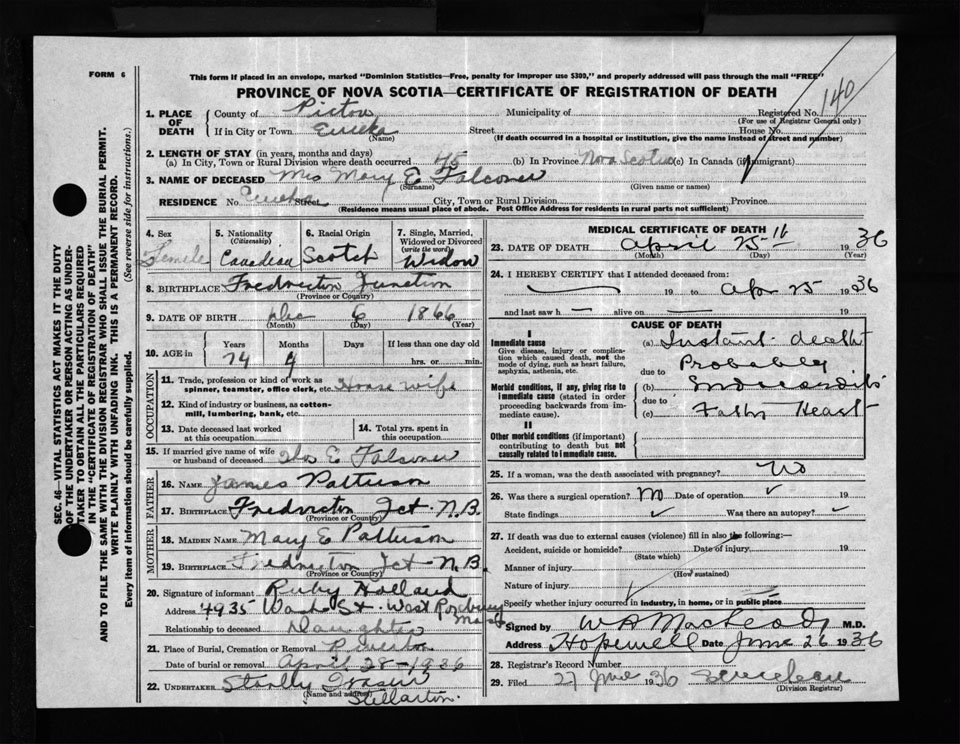 FORM 6
This form if placed in an envelope, marked "Dominion Statistics—Free, penalty for improper use $300," and properly addressed will pass through the mail "FREE"
PROVINCE OF NOVA SCOTIA—CERTIFICATE OF REGISTRATION OF DEATH
140
SEC. 46—VITAL STATISTICS ACT MAKES IT THE DUTY
OF THE UNDERTAKER OR PERSON ACTING AS UNDER-
TAKER TO OBTAIN ALL THE PARTICULARS REQUIRED
IN THE "CERTIFICATE OF REGISTRATION OF DEATH"
AND TO FILE THE SAME WITH THE DIVISION REGISTRAR WHO SHALL ISSUE THE BURIAL PERMIT.
WRITE PLAINLY WITH UNFADING INK. THIS IS A PERMANENT RECORD.
Every item of Information should be carefully supplied. (See reverse side for instructions.)
1. PLACE OF DEATH
County of Pictou Municipality of Registered No.
(For use of Registrar General only)
If in City or Town Eureka Street House No.
(Name) (If death occurred in a hospital or institution, give the name instead of street and number)
2. LENGTH OF STAY (in years, months and days)
(a) In City, Town or Rural Division where death occurred 45 (b) In Province Nova Scotia (c) In Canada (if immigrant)
3. NAME OF DECEASED Mrs Mary E Falconer
(Surname) (Given name or names)
RESIDENCE No. Eureka Street City, Town or Rural Division Province
(Residence means usual place of abode. Post Office Address for residents in rural parts not sufficient)
4. Sex
Female
5. Nationality
(Citizenship)
Canadian
6. Racial Origin
Scotch
7. Single, Married,
Widowed or Divorced
(write the word)
Widow
8. BIRTHPLACE Fredricton Junction
(Province or Country)
9. DATE OF BIRTH Dec 6 1866
(Month) (Day) (Year)
10. AGE in
Years Months Days If less than one day old
74 4 hrs. or min.
OCCUPATION
11. Trade, profession or kind of work as
spinner, teamster, office clerk, etc. House wife
12. Kind of industry or business, as cotton-
mill, lumbering, bank, etc.
13. Date deceased last worked
at this occupation
14. Total yrs. spent in
this occupation
15. If married give name of wife
or husband of deceased E Falconer
FATHER
16. NAME James Patterson
17. BIRTHPLACE Fredricton Jct. N.B.
(Province or Country)
MOTHER
18. MAIDEN NAME Mary E Patterson
19. BIRTHPLACE Fredricton Jct N.B.
(Province or Country)
20. Signature of informant Ruby Holland
Address 4935 Wash St. West Roxbury
Mass
Relationship to deceased Daughter
21. Place of Burial, Cremation or Removal
Date of burial or removal April 28-1936
22. UNDERTAKER
(Name and address)
Stellarton.
MEDICAL CERTIFICATE OF DEATH
23. DATE OF DEATH April 25th 1936
(Month) (Day) (Year)
24. I HEREBY CERTIFY that I attended deceased from:
19 to Apr 25 1936
and last saw h alive on 19
CAUSE OF DEATH
I
Immediate cause
Give disease, injury or complica-
tion which caused death, not the
mode of dying, such as heart failure,
asphyxia, asthenia, etc.
Morbid conditions, if any, giving rise to
immediate cause (stated in order
proceeding backwards from im-
mediate cause).
II
Other morbid conditions (if important)
contributing to death but not
causally related to immediate cause.
(a) Instant death
due to Probably
(b) Endocarditis
due to
(c) Fatty Heart
25. If a woman, was the death associated with pregnancy? No
26. Was there a surgical operation? No Date of operation ✓ 19
State findings ✓ Was there an autopsy? ✓
27. If death was due to external causes (violence) fill in also the following:—
Accident, suicide or homicide? Date of injury 19
(State which)
Manner of injury
(How sustained)
Nature of injury
Specify whether injury occurred in industry, in home, or in public place
Signed by W A MacLeod M.D.
Address Hopewell Date June 26 1936
28. Registrar's Record Number
29. Filed 27 June 1936
(Division Registrar)